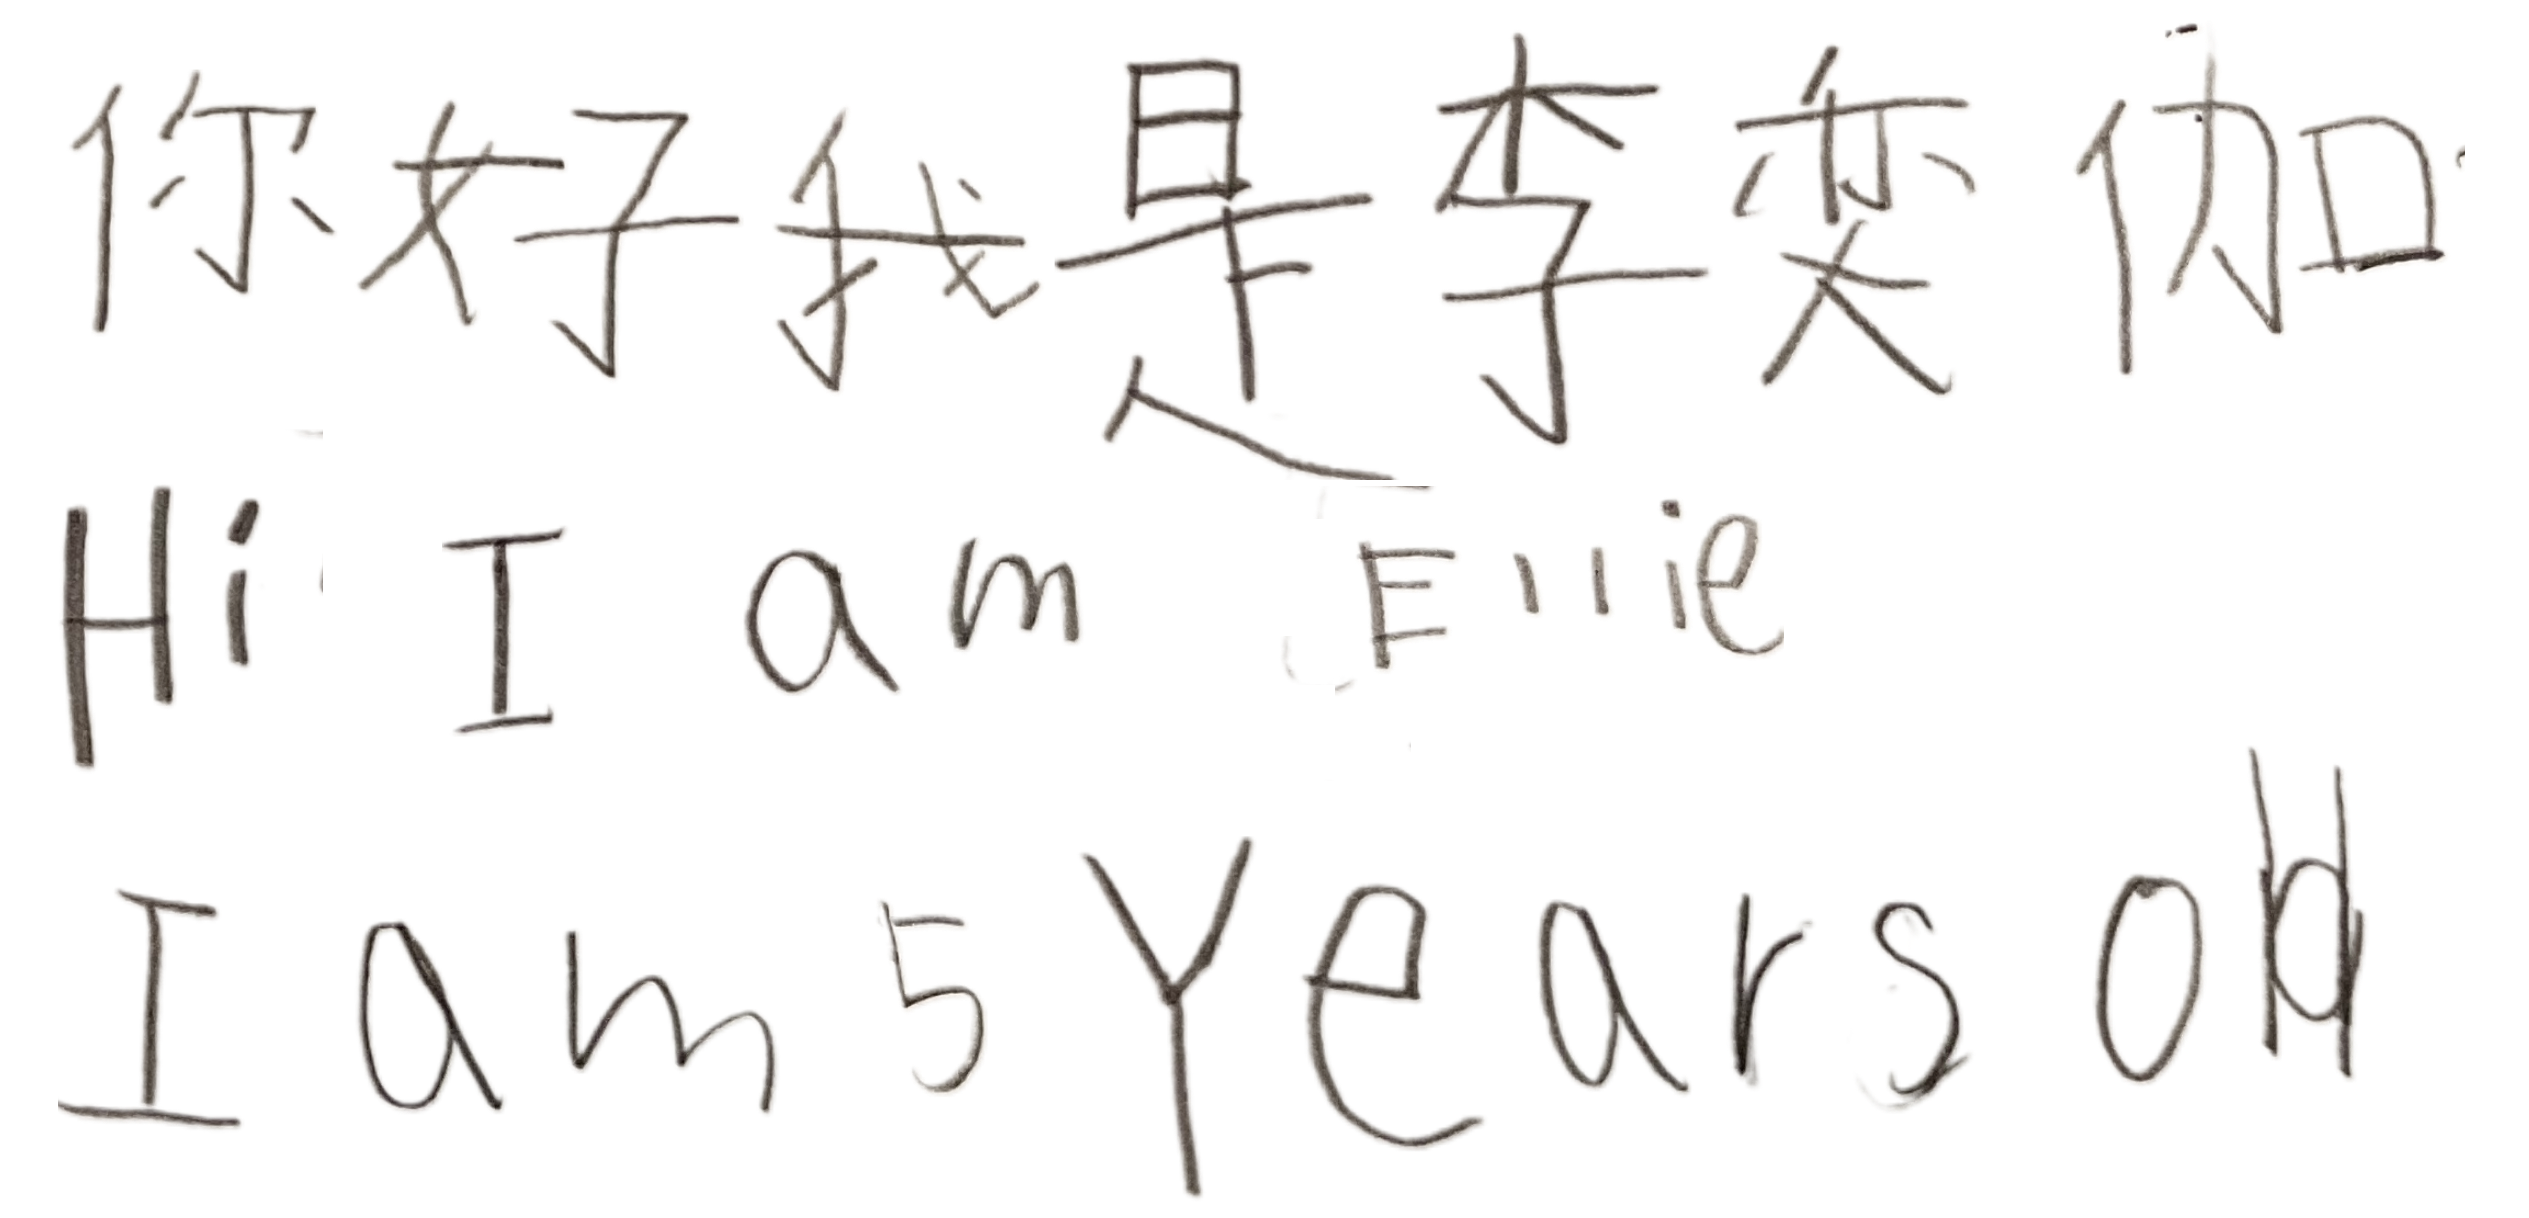 你好我是李奕伽
Hi I am Ellie
I am 5 Years old